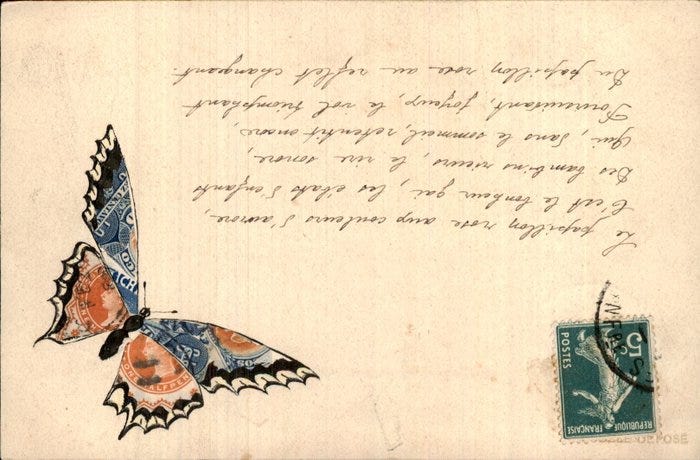 Le papillon rose aux couleurs d'aurore,
C'est le bonheur gai, les éclats d'enfants
Des bambins rieurs, le rire sonore,
Qui, dans le sommeil, retentit encore,
Poursuivant, joyeux, le vol triomphant
Du papillon rose au reflet changeant.
5c
POSTES
RÉPUBLIQUE
FRANÇAISE
ONE HALF PE
DÉPOSÉ